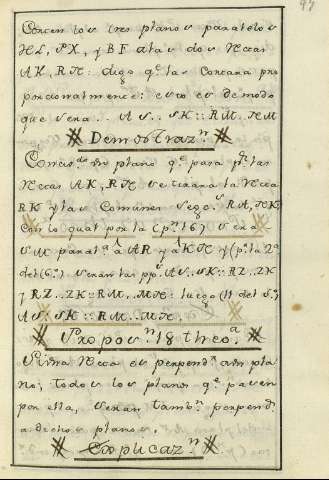 97
Corten los tres planos paralelos
HL, PX, y BF alas dos Rectas
AK, RN: digo q.e las Cortara pro
porcionalmente: esto es de modo
que sera... AS..SK::RM..NM
Demostraz.n
un plano q.e para p.r las
Rectas AK, RN se tirara la Recta
RK y las Comunes RA, NK
Con lo qual por la (p.n 16) sera
SM paral.a â AR y â KN y (p.r la 2a
del 6.o) seran las AS..SK::RZ..ZK
y RZ..ZK::RM..MN: luego (11 del 5.o)
AS..SK::RM..MN.
Propos.n 18 theo.a
Si una Recta es perpend.r a un pla
no; todos los planos q.e pasen
por ella, seran tamb.n perpend.s
a dicho plano.
Explicaz.n